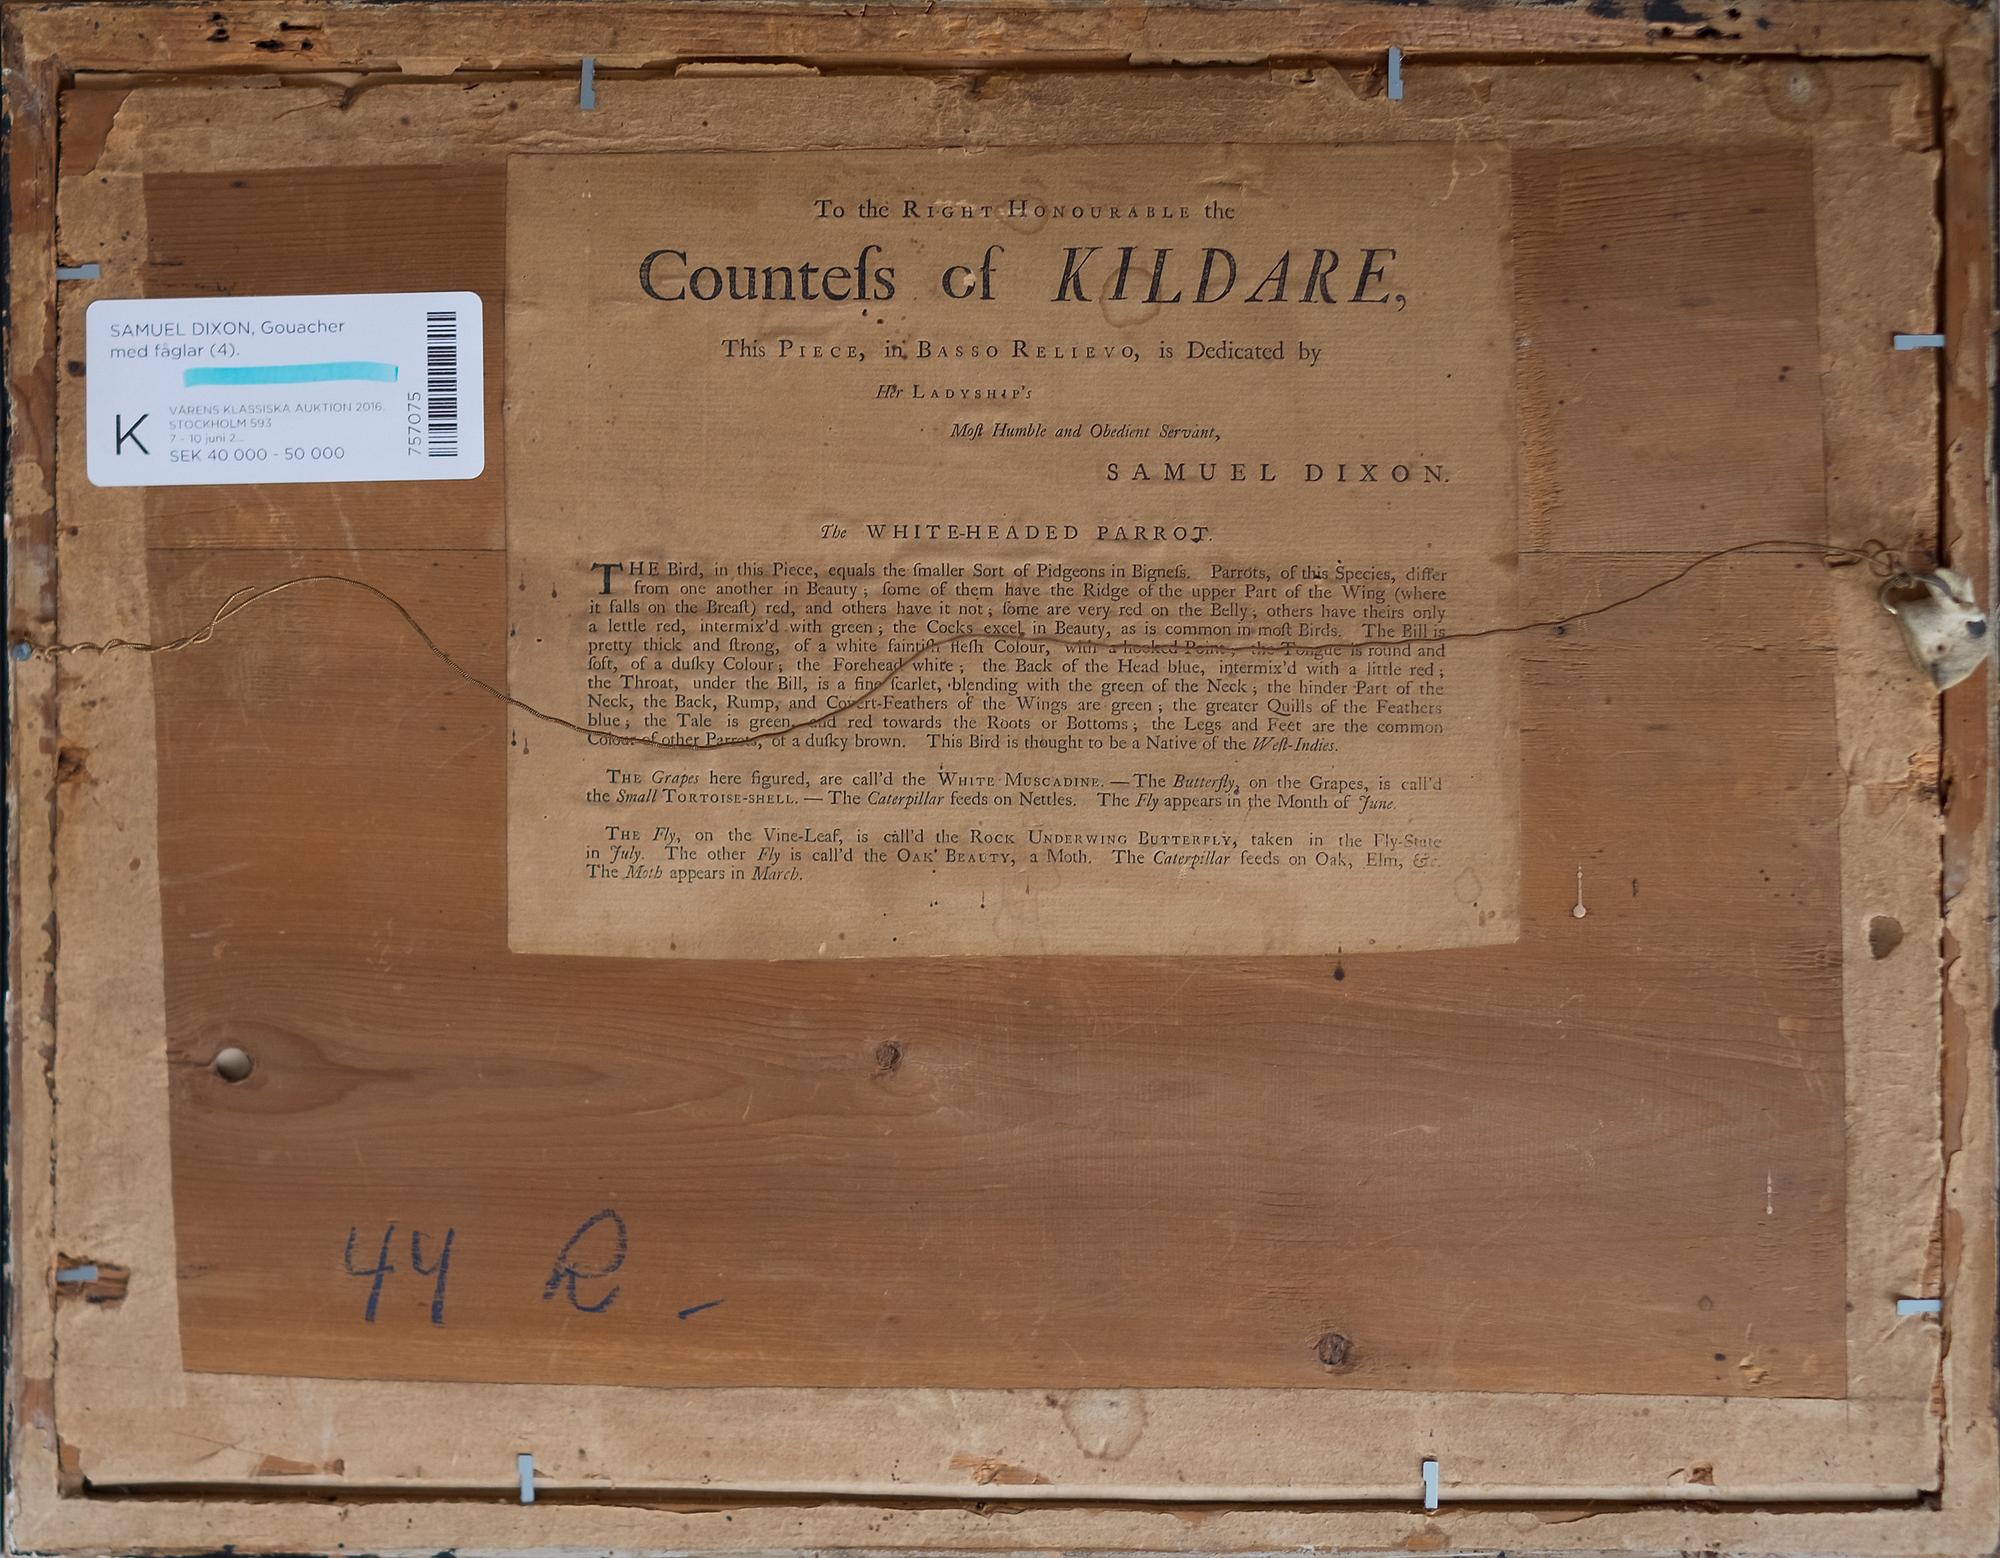 To the RIGHT HONOURABLE the
Counteſs of KILDARE,
This PIECE, in BASSO RELIEVO, is Dedicated by
Her LADYSHIP's
Moſt Humble and Obedient Servant,
SAMUEL DIXON.
The WHITE-HEADED PARROT.
THE Bird, in this Piece, equals the ſmaller Sort of Pidgeons in Bigneſs. Parrots, of this Species, differ
from one another in Beauty; ſome of them have the Ridge of the upper Part of the Wing (where
it falls on the Breaſt) red, and others have it not; ſome are very red on the Belly; others have theirs only
a lettle red, intermix'd with green; the Cocks excel in Beauty, as is common in moſt Birds. The Bill is
pretty thick and ſtrong, of a white faintiſh fleſh Colour, with a hooked Point; the Tongue is round and
ſoft, of a duſky Colour; the Forehead white; the Back of the Head blue, intermix'd with a little red;
the Throat, under the Bill, is a fine ſcarlet, blending with the green of the Neck; the hinder Part of the
Neck, the Back, Rump, and Covert-Feathers of the Wings are green; the greater Quills of the Feathers
blue; the Tale is green, and red towards the Roots or Bottoms; the Legs and Feet are the common
Colour of other Parrots, of a duſky brown. This Bird is thought to be a Native of the Weſt-Indies.
THE Grapes here figured, are call'd the WHITE MUSCADINE. — The Butterfly, on the Grapes, is call'd
the Small TORTOISE-SHELL. — The Caterpillar feeds on Nettles. The Fly appears in the Month of June.
THE Fly, on the Vine-Leaf, is call'd the ROCK UNDERWING BUTTERFLY, taken in the Fly-State
in July. The other Fly is call'd the OAK BEAUTY, a Moth. The Caterpillar feeds on Oak, Elm, &c.
The Moth appears in March.
SAMUEL DIXON, Gouacher
med fåglar (4).
K
VÅRENS KLASSISKA AUKTION 2016,
STOCKHOLM 593
7 - 10 juni 2...
SEK 40 000 - 50 000
757075
44 R -